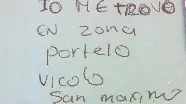 IO ME TROVO
CN zona
portelo
vicolo
San maximo